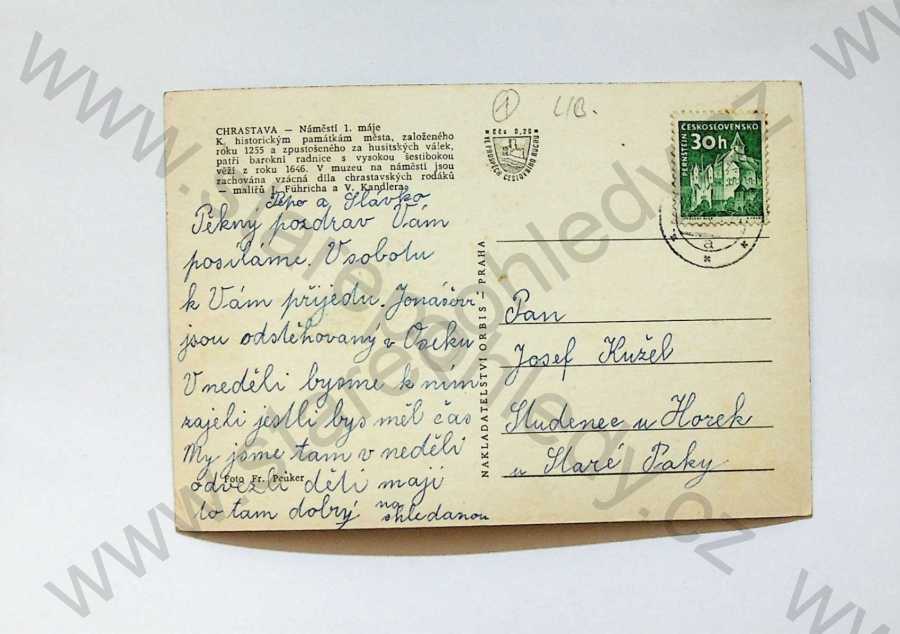 CHRASTAVA — Náměstí 1. máje
K historickým památkám města, založeného
roku 1255 a zpustošeného za husitských válek,
patří barokní radnice s vysokou šestibokou
věží z roku 1646. V muzeu na náměstí jsou
zachována vzácná díla chrastavských rodáků
— malířů J. Führicha a V. Kandlera.
Pepo a Slávko
Pěkný pozdrav Vám
posíláme. V sobotu
k Vám přijedu. Jonášovi
jsou odstěhovaný v Oseku
V neděli bysme k ním
zajeli jestli bys měl čas
My jsme tam v neděli
odvezli děti mají
to tam dobrý na shledanou
Foto Fr. Peuker
NAKLADATELSTVÍ ORBIS — PRAHA
1
LIB.
Kčs 0,20
VE PROSPĚCH CESTOVNÍHO RUCHU
ČESKOSLOVENSKO
30h
PERNŠTEJN
a
Pan
Josef Kužel
Studenec u Horek
u Staré Paky
www.starepohledy.cz
www.starepohledy.cz